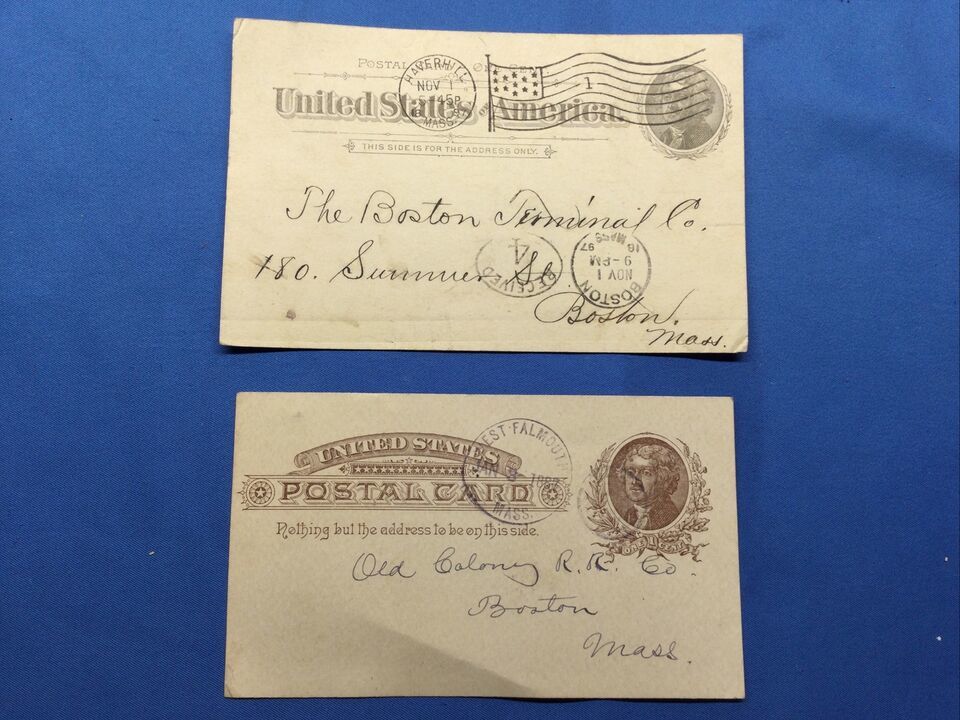 POSTAL CARD ONE CENT.
United States of America.
THIS SIDE IS FOR THE ADDRESS ONLY.
HAVERHILL
NOV 1
5 45P
MASS.
1
The Boston Terminal Co.
180. Summer St.
Boston,
Mass.
RECEIVED
4
BOSTON
NOV 1
9-PM
97
MASS
UNITED STATES
POSTAL CARD
Nothing but the address to be on this side.
WEST FALMOUTH
MASS.
ONE 1 CENT
Old Colony R. R. Co.
Boston
Mass.